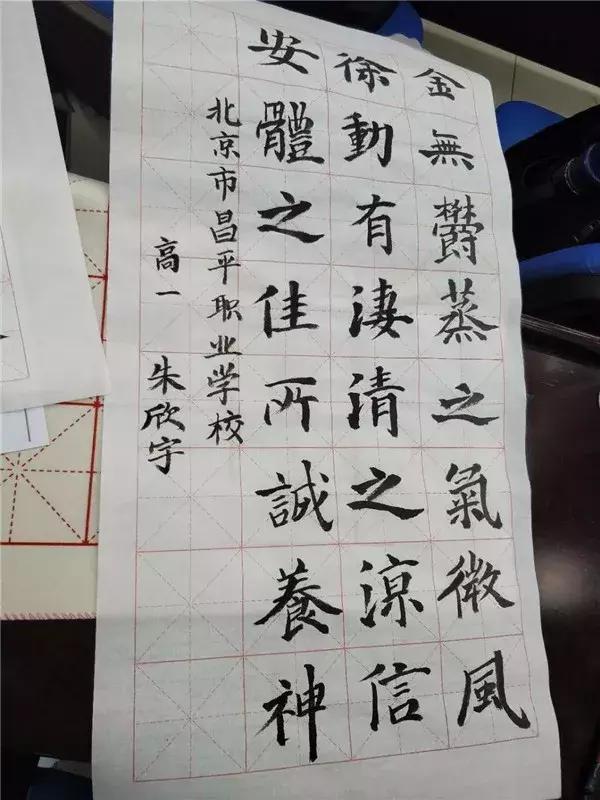 金無欝蒸之氣微風
徐動有淒清之涼信
安體之佳所誠養神
北京市昌平职业学校
高一 朱欣宇